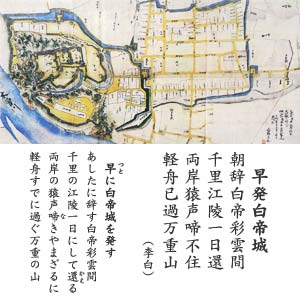 早発白帝城
朝辞白帝彩雲間
千里江陵一日還
両岸猿声啼不住
軽舟已過万重山
（李白）
早に白帝城を発す
つと
あしたに辞す白帝彩雲間
千里の江陵一日にして還る
かえ
両岸の猿声啼きやまざるに
な
軽舟すでに過ぐ万重の山